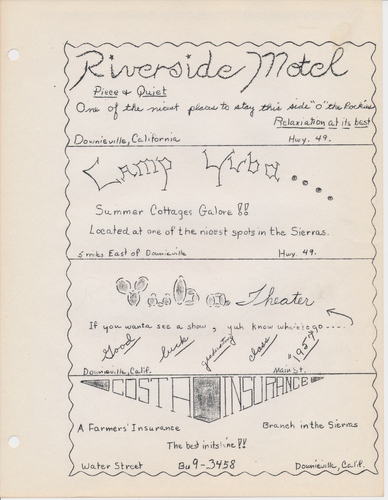 Riverside Motel
Piece & Quiet
One of the nicest places to stay this side "O" the Rockies
Relaxiation at its best
Downieville, California Hwy. 49.
Camp Yuba....
Summer Cottages Galore!!
Located at one of the nicest spots in the Sierras.
5 miles East of Downieville Hwy. 49.
Theater
If you wanta see a show, yuh know where to go....
Good luck graduating class "1957"
Downieville, Calif. Main St.
COSTA INSURANCE
A Farmers' Insurance Branch in the Sierras
The best in its line!!
Water Street Bu 9-3458 Downieville, Calif.